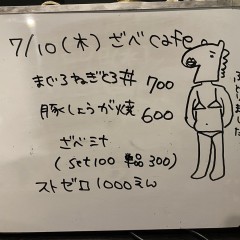 7/10(木)ざべcafe
まぐろねぎとろ丼 700
豚しょうが焼 600
ざべミナ
(set100 単品300)
ストゼロ1000えん